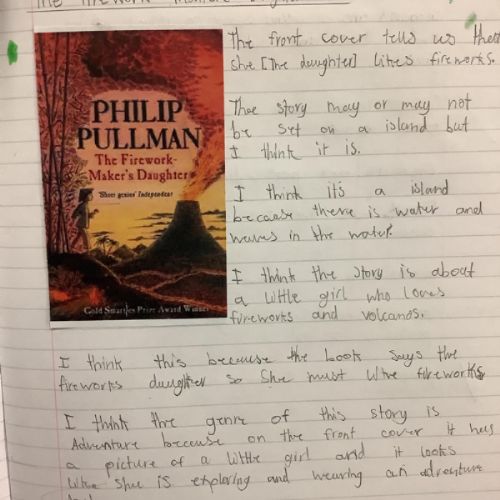 The Firework Makers Daughter
PHILIP
PULLMAN
The Firework-
Maker's Daughter
'Sheer genius' Independent
Gold Smarties Prize Award Winner
The front cover tells us that
she [The daughter] likes fireworks.
The story may or may not
be set on a island but
I think it is.
I think it's a island
because there is water and
waves in the water.
I think the story is about
a little girl who loves
fireworks and volcanos.
I think this because the book says the
fireworks daughter so she must like fireworks
I think the genre of this story is
Adventure because on the front cover it has
a picture of a little girl and it looks
like she is exploring and wearing an adventure